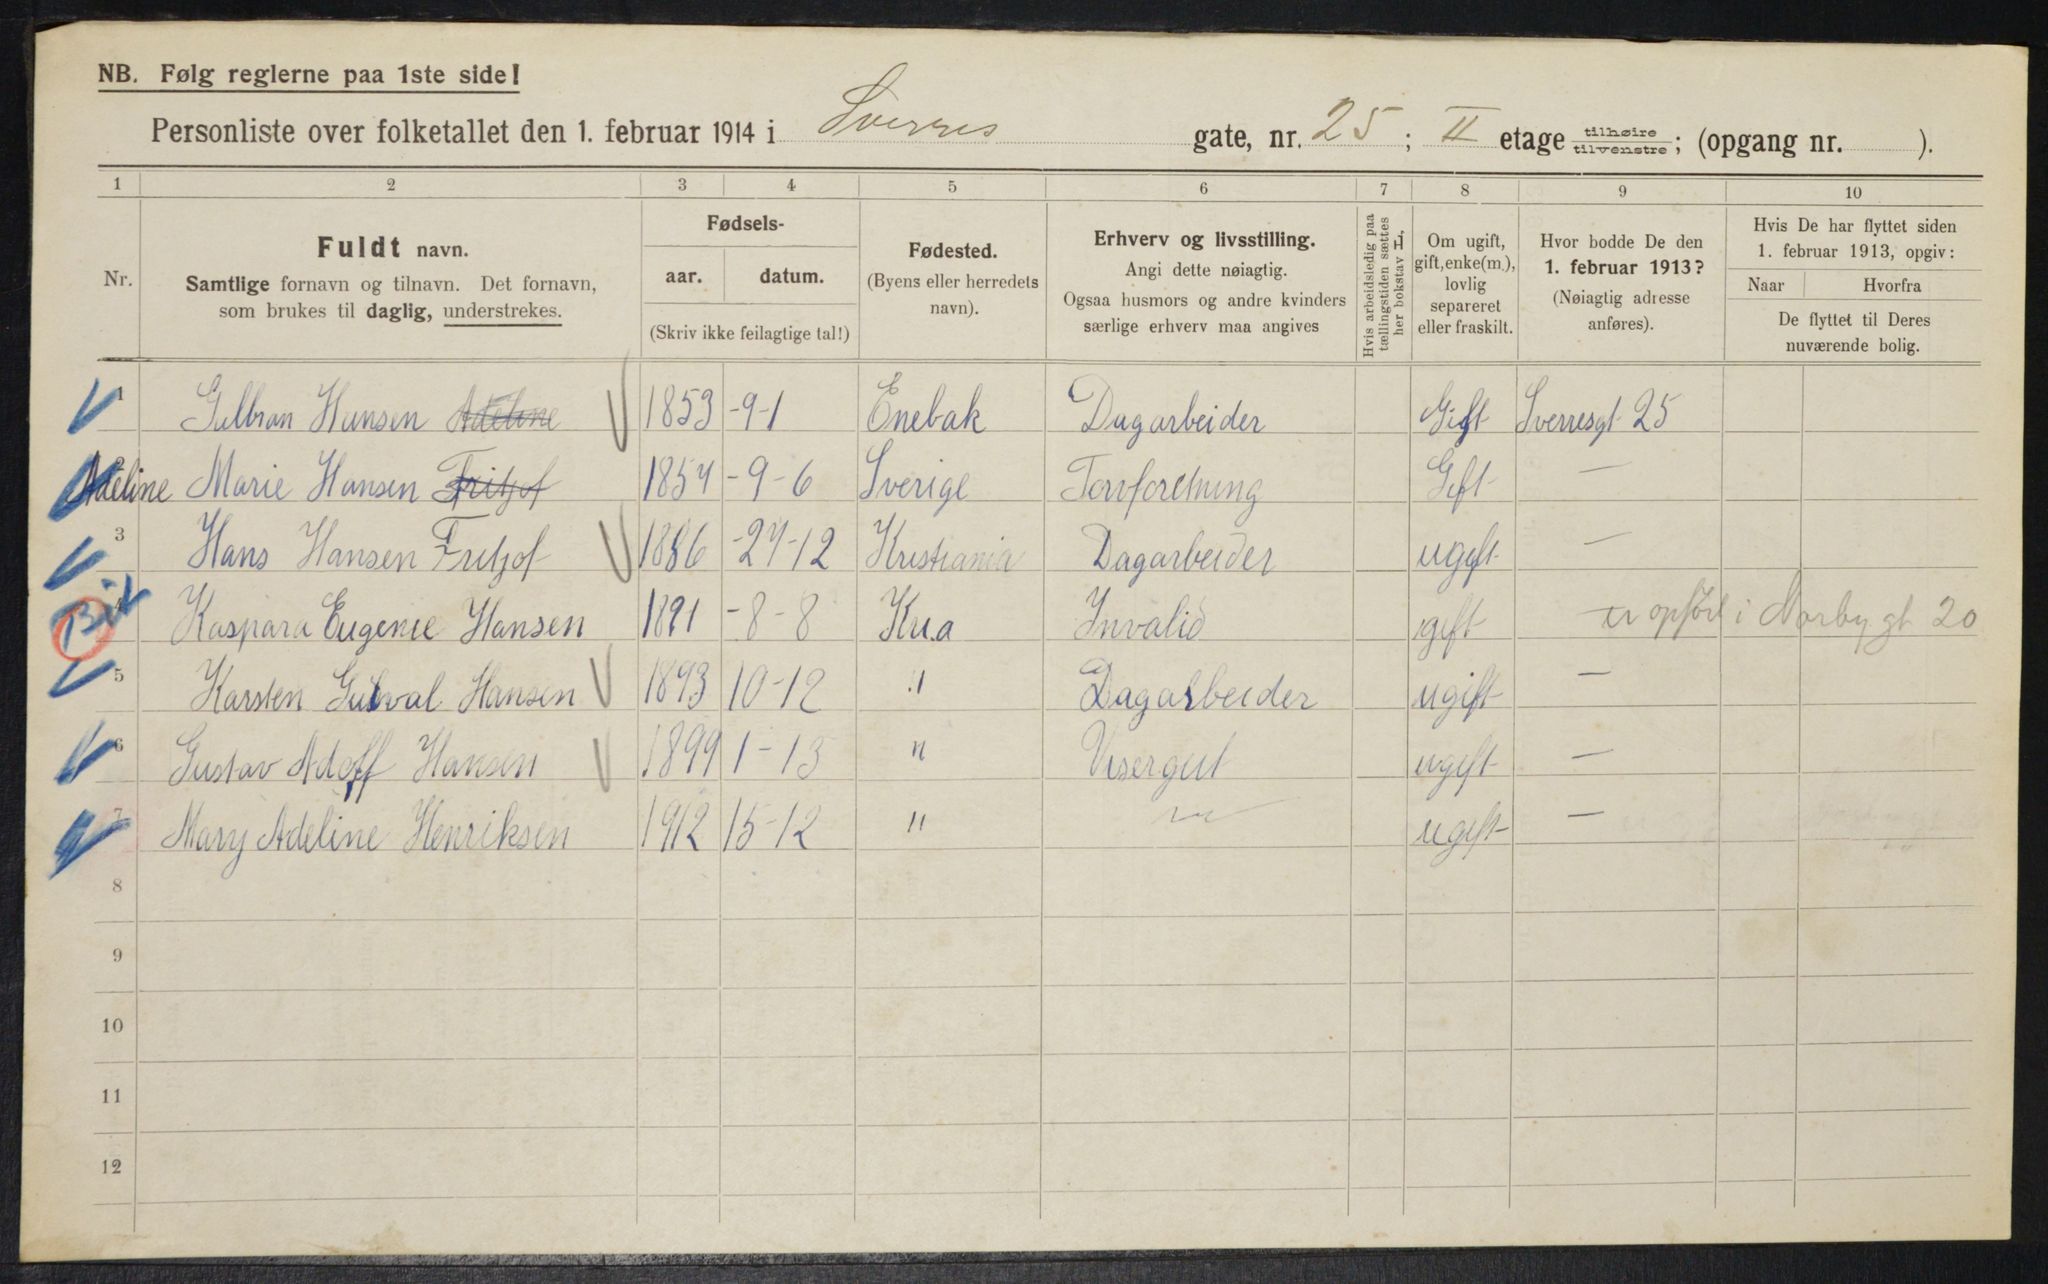 NB. Følg reglerne paa 1ste side!
Personliste over folketallet den 1. februar 1914 i Sverres gate, nr. 25 ; II etage tilhøire / tilvenstre ; (opgang nr. ).
1 2 3 4 5 6 7 8 9 10
Nr.
Fuldt navn.
Samtlige fornavn og tilnavn. Det fornavn,
som brukes til daglig, understrekes.
Fødsels-
aar. datum.
(Skriv ikke feilagtige tal!)
Fødested.
(Byens eller herredets
navn).
Erhverv og livsstilling.
Angi dette nøiagtig.
Ogsaa husmors og andre kvinders
særlige erhverv maa angives
Hvis arbeidsledig paa
tællingstiden sættes
her bokstav H.
Om ugift,
gift, enke(m.),
lovlig
separeret
eller fraskilt.
Hvor bodde De den
1. februar 1913?
(Nøiagtig adresse
anføres).
Hvis De har flyttet siden
1. februar 1913, opgiv:
Naar Hvorfra
De flyttet til Deres
nuværende bolig.
1 Gulbran Hansen Adeline 1853 -9-1 Enebak Dagarbeider Gift Sverresgt 25
2 Adeline Marie Hansen Fritjof 1854 -9-6 Sverige Gift —
3 Hans Hansen Fritjof 1886 -27-12 Kristiania Dagarbeider ugift —
4 Kaspara Eugenie Hansen 1891 -8-8 Kr.a Invalid gift er opført i Norbygt 20
5 Karsten Gulval Hansen 1893 10-12 " Dagarbeider ugift —
6 Gustav Adolf Hansen 1899 1-13 " Visergut ugift —
7 Mary Adeline Henriksen 1912 15-12 " ugift —
8
9
10
11
12